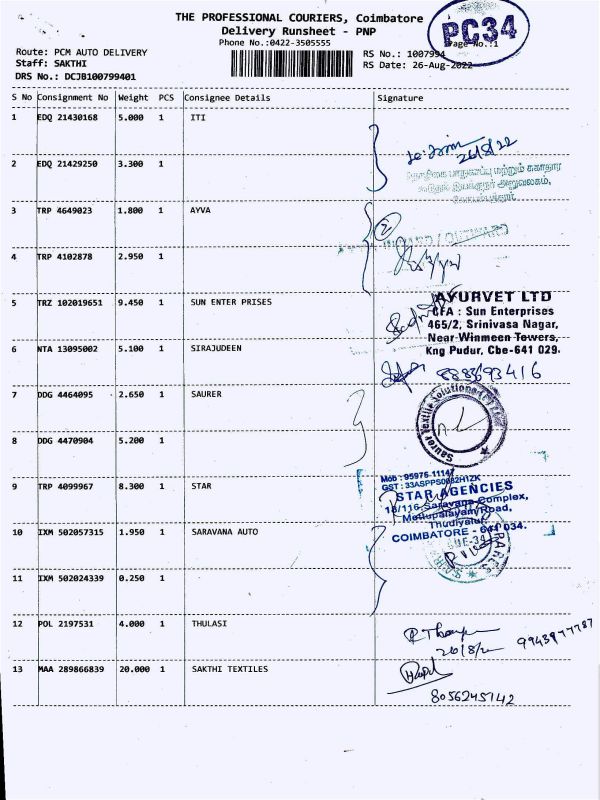 THE PROFESSIONAL COURIERS, Coimbatore
Delivery Runsheet - PNP
Phone No.:0422-3505555
PC34
Page No.:1
Route: PCM AUTO DELIVERY
Staff: SAKTHI
DRS No.: DCJB100799401
RS No.: 1007994
RS Date: 26-Aug-2022
S No Consignment No Weight PCS Consignee Details Signature
1 EDQ 21430168 5.000 1 ITI
26/8/22
2 EDQ 21429250 3.300 1
3 TRP 4649023 1.800 1 AYVA
4 TRP 4102878 2.950 1
5 TRZ 102019651 9.450 1 SUN ENTER PRISES
AYURVET LTD
CFA : Sun Enterprises
465/2, Srinivasa Nagar,
Near Winmeen Towers,
Kng Pudur, Cbe-641 029.
6 NTA 13095002 5.100 1 SIRAJUDEEN
8883693416
7 DDG 4464095 2.650 1 SAURER
Saurer Textile Solutions
8 DDG 4470904 5.200 1
9 TRP 4099967 8.300 1 STAR
Mob : 95976-11147
STAR AGENCIES
18/116, Saravana Complex,
Mettupalayam Road,
Thudiyalur,
COIMBATORE - 641 034.
10 IXM 502057315 1.950 1 SARAVANA AUTO
11 IXM 502024339 0.250 1
12 POL 2197531 4.000 1 THULASI
13 MAA 289866839 20.000 1 SAKTHI TEXTILES
8056245142